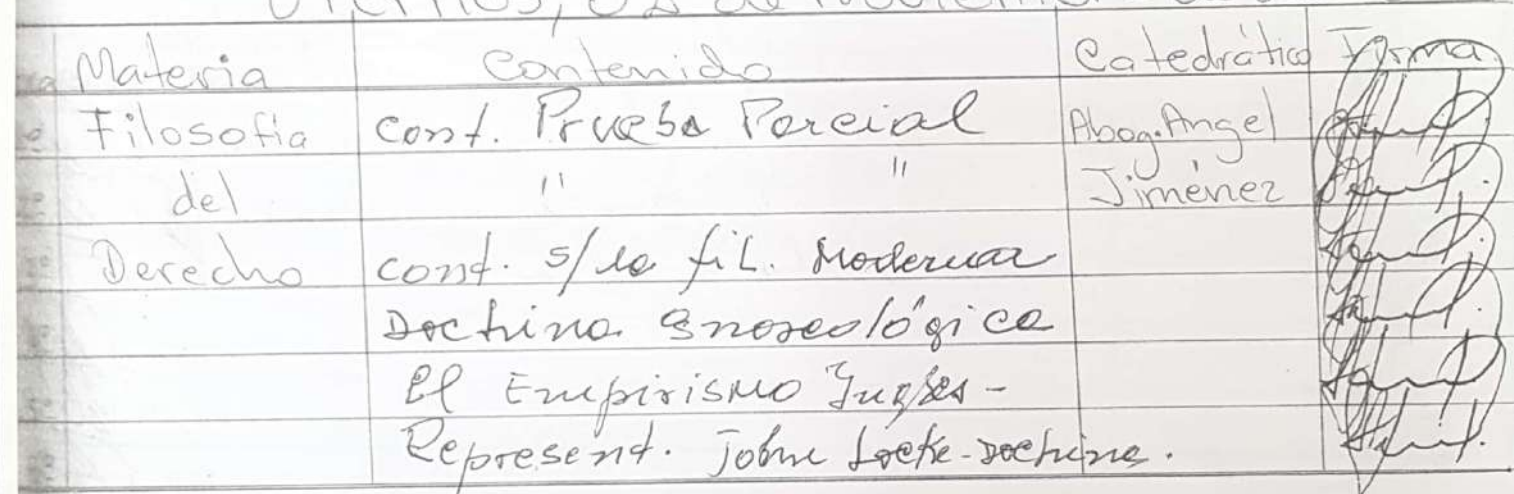 Viernes, 02 de noviembre
Materia Contenido Catedrático Firma
Filosofía Cont. Prueba Parcial Abog. Angel
del " " Jiménez
Derecho cont. s/ la fil. Moderna
Doctrina Gnoseológica
El Empirismo Inglés -
Represent. John Locke - Doctrina.